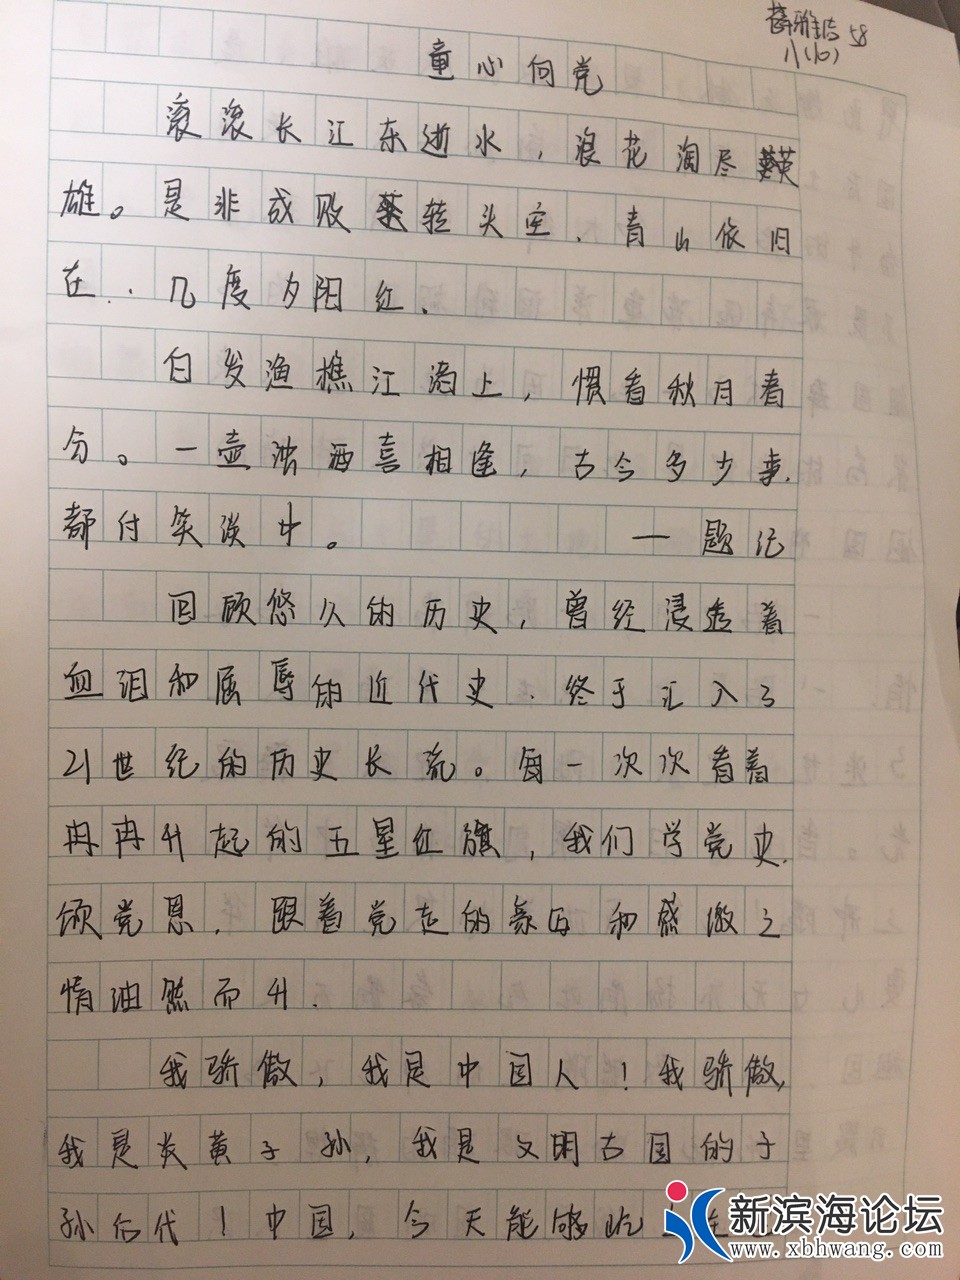 薛雅 58
八(10)
童心向党
滚滚长江东逝水，浪花淘尽英
雄。是非成败转头空，青山依旧
在，几度夕阳红。
白发渔樵江渚上，惯看秋月春
分。一壶浊酒喜相逢，古今多少事，
都付笑谈中。 — 题记
回顾悠久的历史，曾经浸透着
血泪和屈辱的近代史，终于汇入了
21世纪的历史长流。每一次次看着
冉冉升起的五星红旗，我们学党史，
颂党恩，跟着党走的豪迈和感激之
情油然而升。
我骄傲，我是中国人！我骄傲，
我是炎黄子孙，我是文明古国的子
孙后代！中国，今天能够屹立在
新滨海论坛
www.xbhwang.com